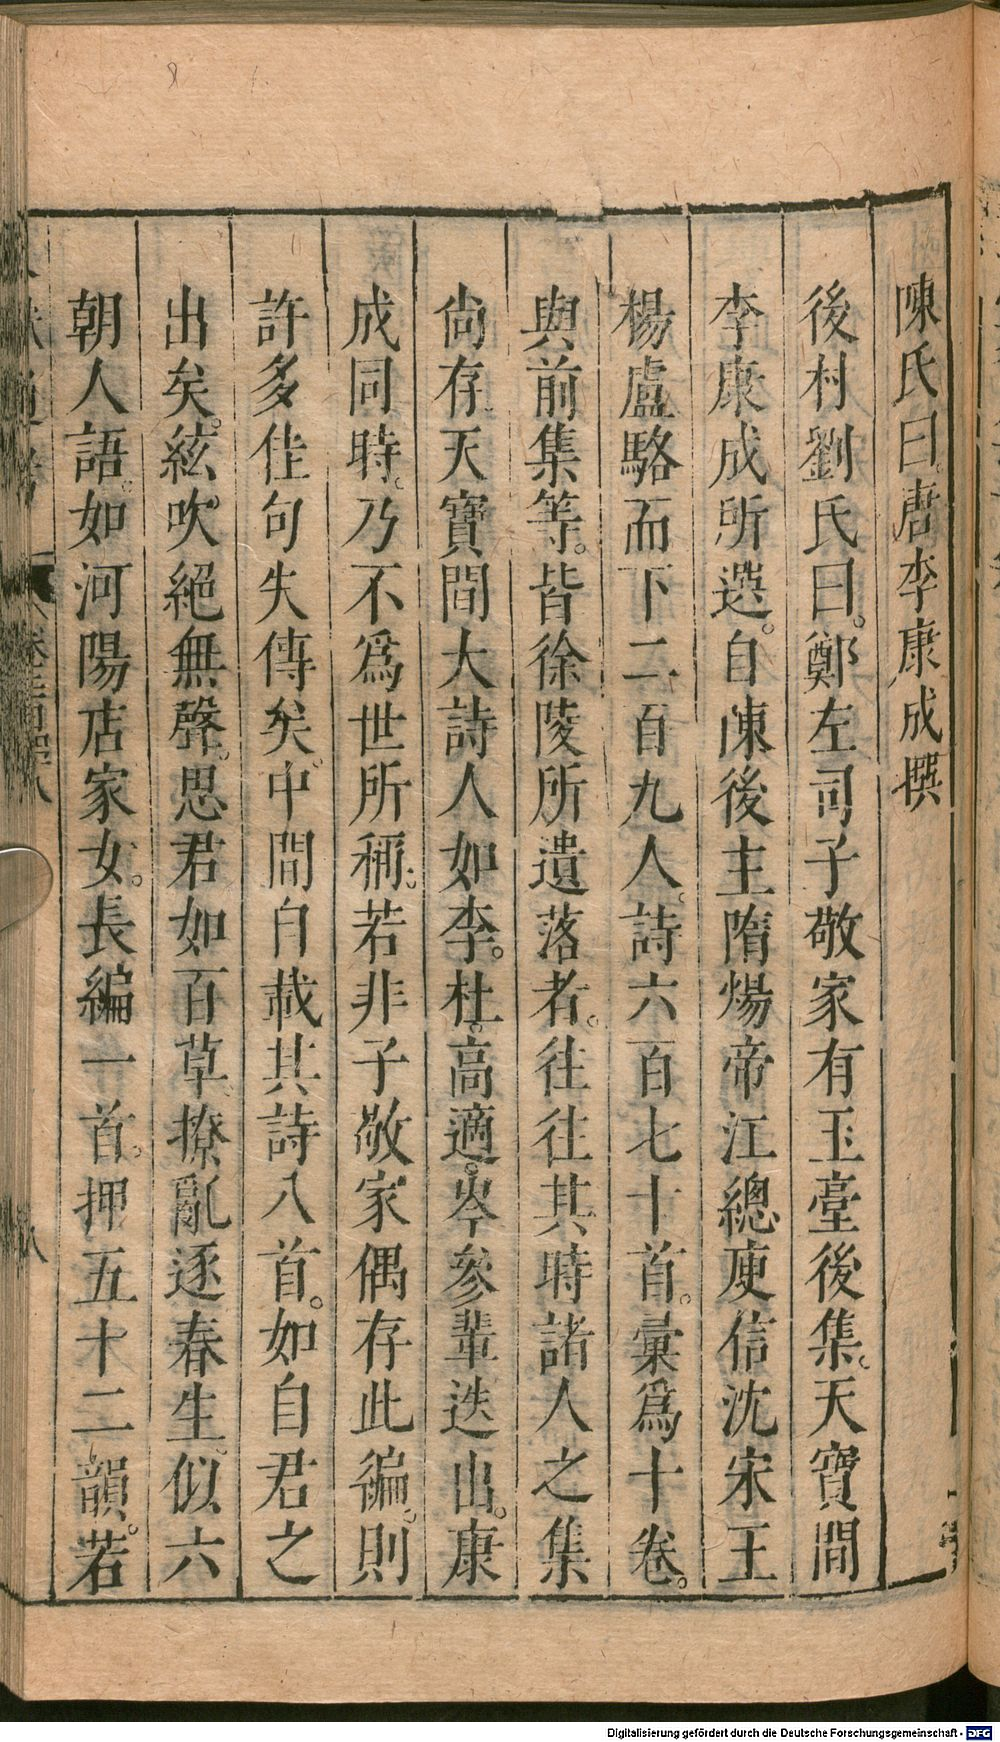 陳氏曰。唐李康成撰
後村劉氏曰。鄭左司子敬家有玉臺後集。天寶間
李康成所選。自陳後主隋煬帝江總庾信沈宋王
楊盧駱而下二百九人。詩六百七十首。彙爲十卷。
與前集等。皆徐陵所遺落者。往往其時諸人之集
尙存天寶間大詩人如李。杜。高適。岑參輩迭出。康
成同時。乃不爲世所稱。若非子敬家偶存此徧。則
許多佳句失傳矣。中間自載其詩八首。如自君之
出矣。絃吹絕無聲。思君如百草。撩亂逐春生。似六
朝人語。如河陽店家女。長編一首。押五十二韻。若
八
Digitalisierung gefördert durch die Deutsche Forschungsgemeinschaft - DFG